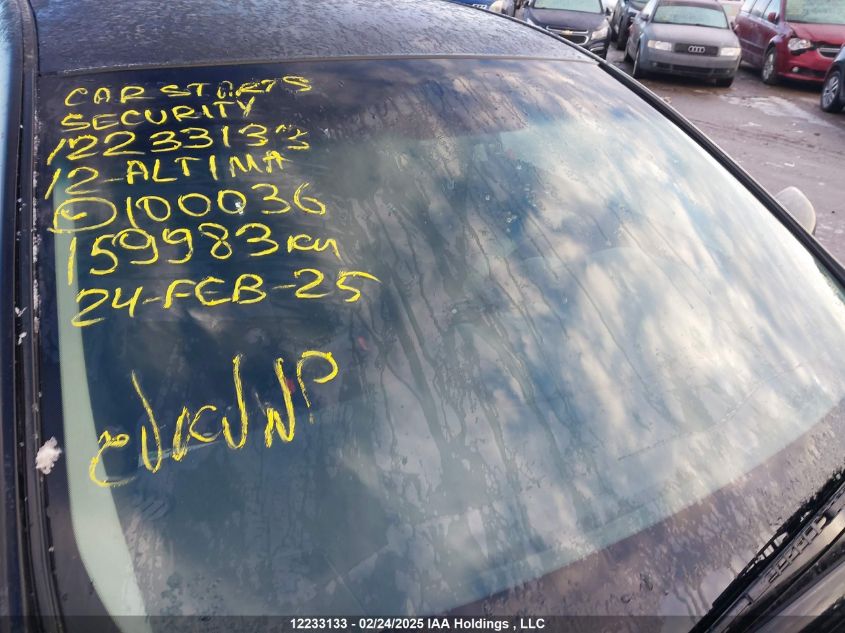 CAR STARTS
SECURITY
12233133
12-ALTIMA
100036
159983 KM
24-FEB-25
12233133 - 02/24/2025 IAA Holdings , LLC